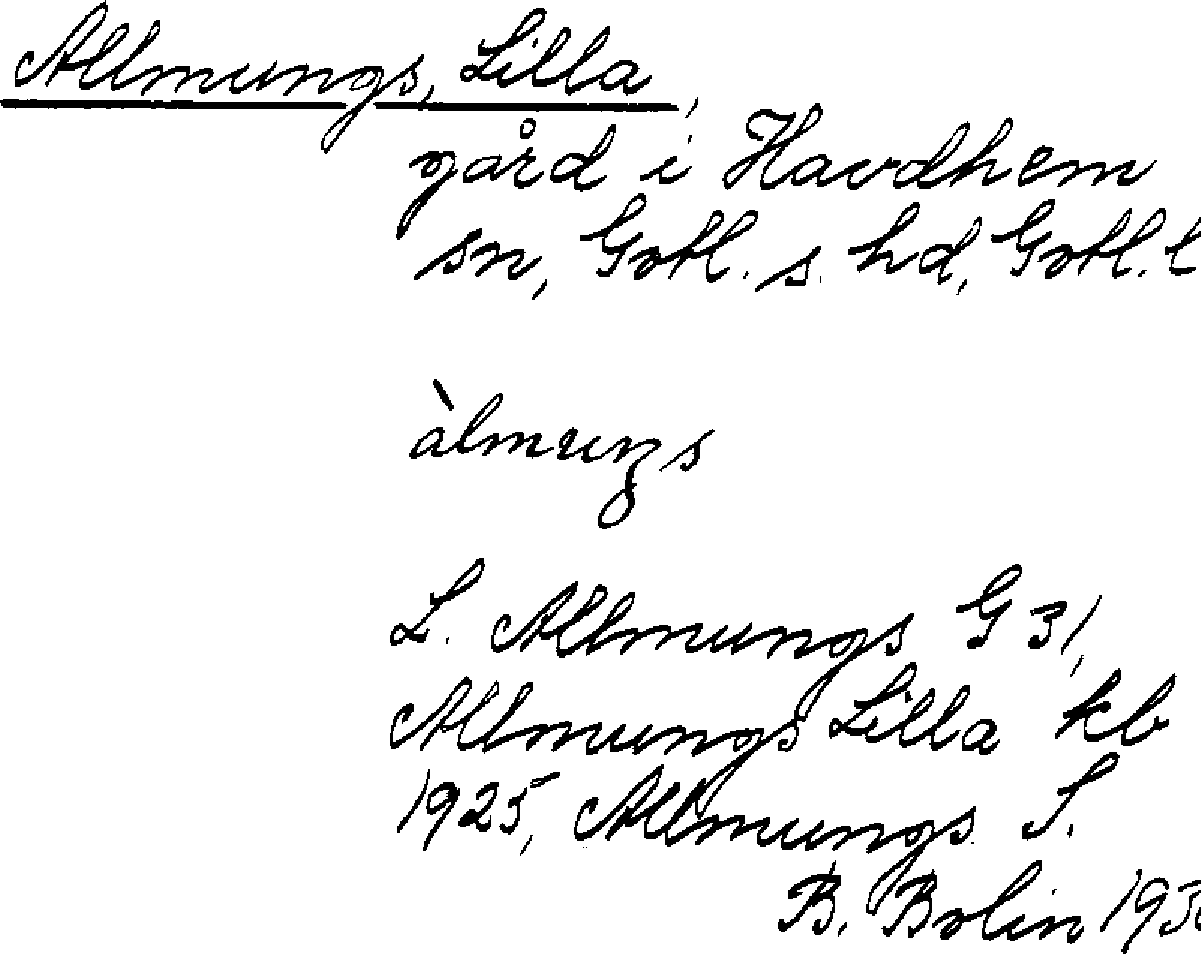 Allmungs, Lilla,
gård i Havdhem
sn, Gotl. s. hd, Gotl. l
àlmuŋs
L. Allmungs G 31,
Allmungs Lilla kb
1925, Allmungs S.
B. Bolin